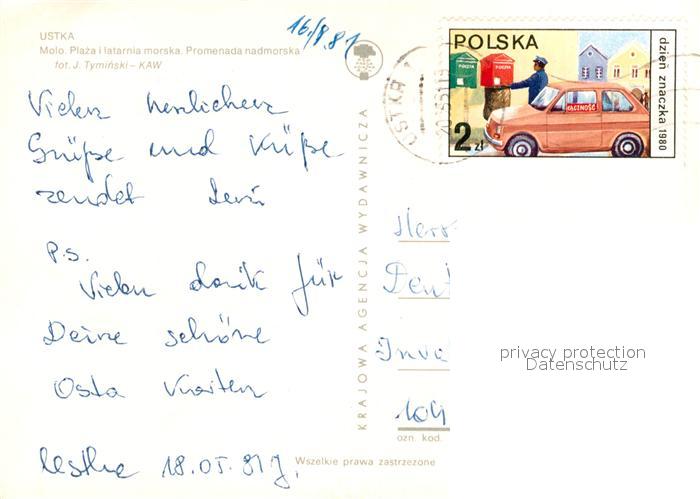 16./8.81
USTKA
Molo. Plaża i latarnia morska. Promenada nadmorska
fot. J. Tymiński – KAW
POLSKA
POCZTA
POCZTA
ŁĄCZNOŚĆ
2 zł
dzień znaczka 1980
USTKA
Vielen herzlichen
Grüße und Küße
sendet
P.S.
Vielen dank für
Deine schöne
Osta Karten
Ustka 18.05.81 J.
KRAJOWA AGENCJA WYDAWNICZA
Herr
104
ozn. kod.
Wszelkie prawa zastrzeżone
privacy protection
Datenschutz